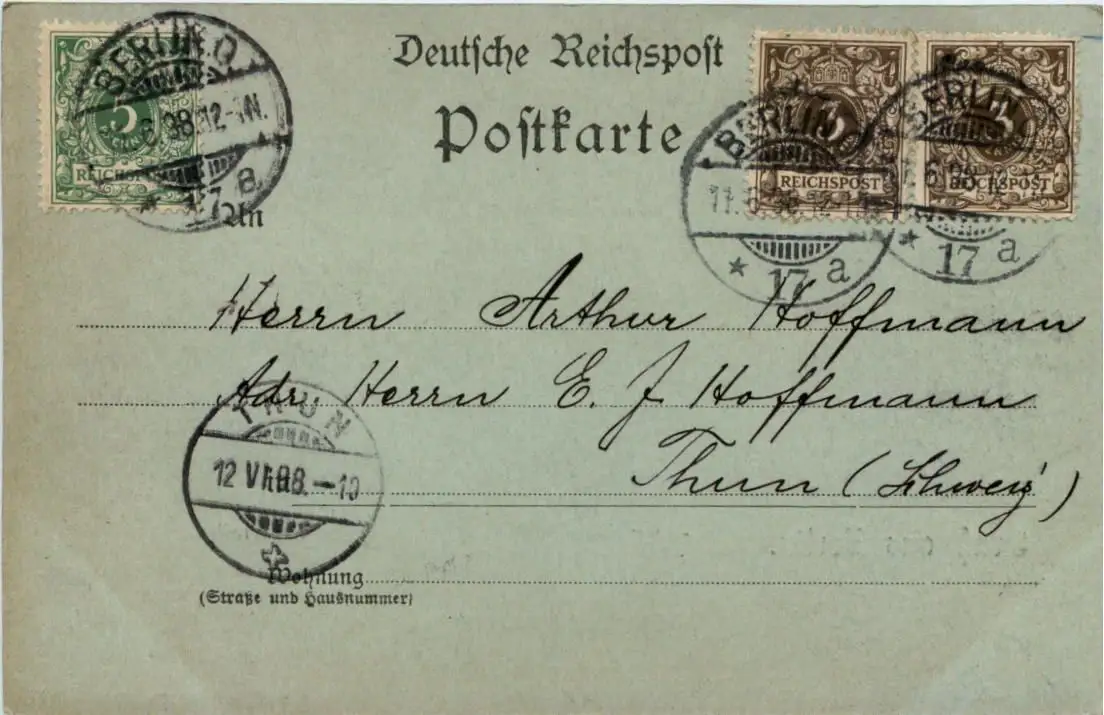 Deutsche Reichspost
Postkarte
5
REICHSPOST
BERLIN.O.
6.98.12-1N.
* 17 a
3
REICHSPOST
BERLIN
11.
* 17 a
3
REICHSPOST
BERLIN
6.98.12
* 17 a
An
Herrn Arthur Hoffmann
Adr. Herrn E. J. Hoffmann
Thun (Schweiz)
THUN
12 VI.98.–10
Wohnung
(Straße und Hausnummer)